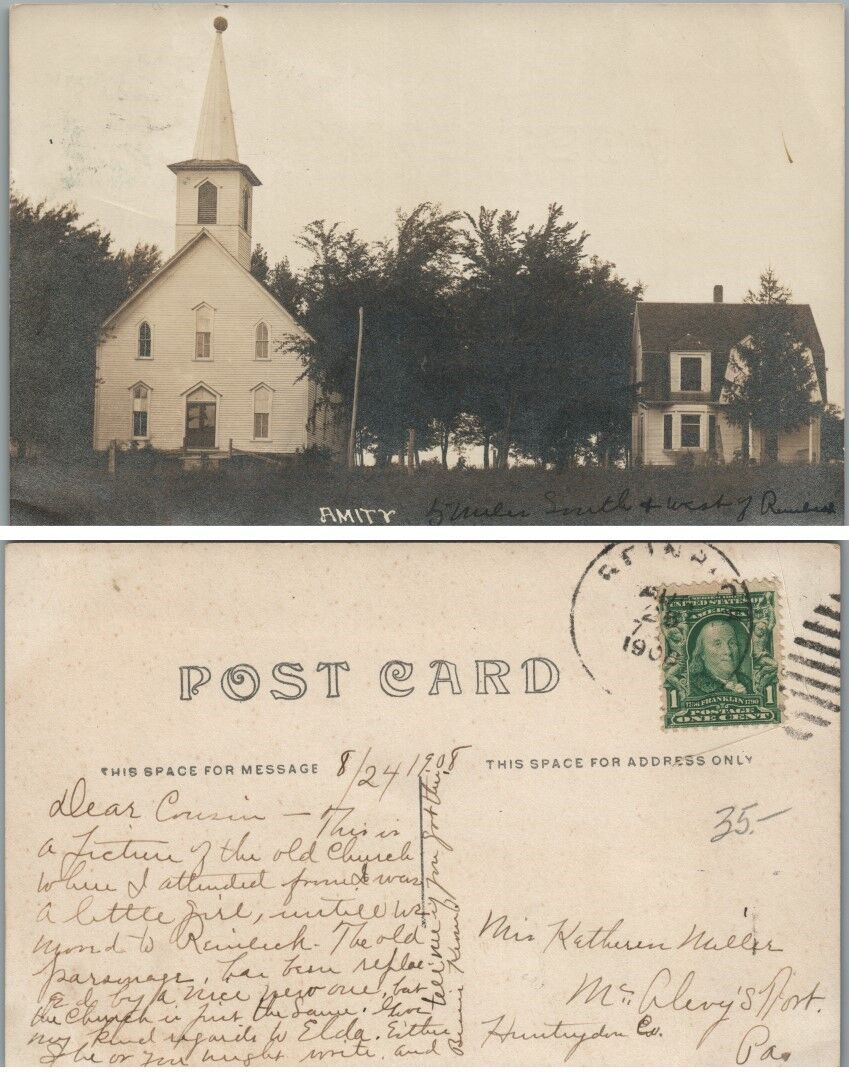 AMITY 5 Miles South & West of Reinbeck
REINB
190
UNITED STATES OF
AMERICA
1 1
FRANKLIN
POSTAGE
ONE CENT
POST CARD
THIS SPACE FOR MESSAGE 8/24 1908
THIS SPACE FOR ADDRESS ONLY
35.-
Dear Cousin - This is
a Picture of the old Church
where I attended from I was
a little girl, untill we
moved to Reinbeck. The old
parsonage, has been replac
ed by a nice new one, but
the Church is just the same. Give
my kind regards to Elda. Either
She or you might write, and
tell me if you got this.
Miss Katheren Miller
Mc Alevy's Fort.
Huntingdon Co.
Pa.